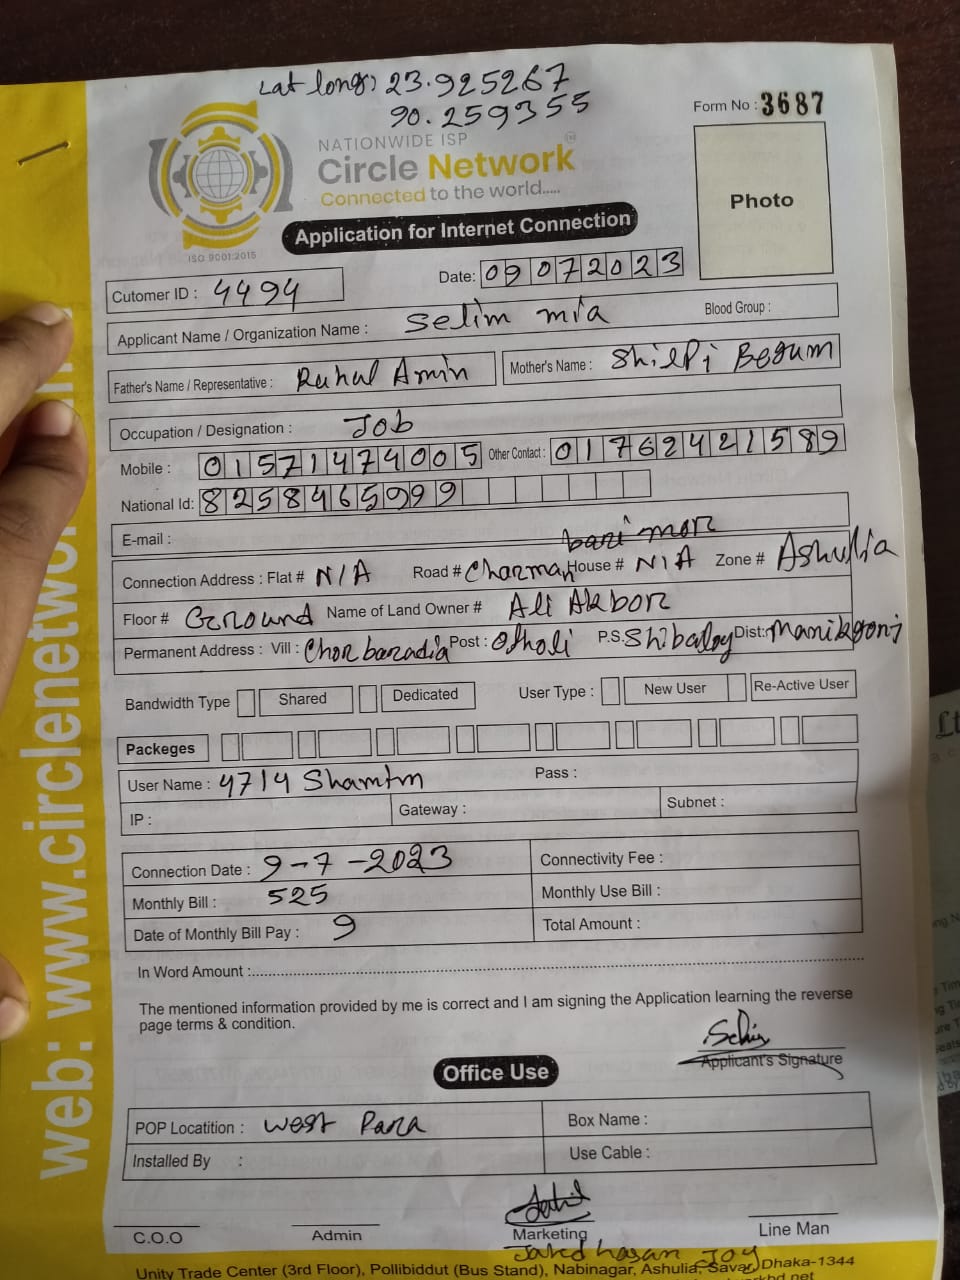 Lat long: 23.925267
90.259355
Form No : 3687
NATIONWIDE ISP
Circle Network
Connected to the world.....
ISO 9001:2015
Application for Internet Connection
Photo
Date: 09072023
Cutomer ID : 4494
Applicant Name / Organization Name : Selim mia Blood Group :
Father's Name / Representative : Ruhul Amin Mother's Name : Shilpi Begum
Occupation / Designation : Job
Mobile : 01571474005 Other Contact : 01762421589
National Id: 8258465999
E-mail :
bari mor
Connection Address : Flat # N/A Road # Charman House # N/A Zone # Ashulia
Floor # Ground Name of Land Owner # Ali Akbor
Permanent Address : Vill : Chorbaradia Post : Otholi P.S. Shibaloy Dist: Manikgonj
Bandwidth Type Shared Dedicated User Type : New User Re-Active User
Packeges
User Name : 4714 Shamim Pass :
IP : Gateway : Subnet :
Connection Date : 9-7-2023 Connectivity Fee :
Monthly Bill : 525 Monthly Use Bill :
Date of Monthly Bill Pay : 9 Total Amount :
In Word Amount :
The mentioned information provided by me is correct and I am signing the Application learning the reverse
page terms & condition.
Selim
Applicant's Signature
Office Use
POP Locatition : west Para Box Name :
Installed By : Use Cable :
C.O.O Admin Marketing Line Man
Jahed hasan Joy
Unity Trade Center (3rd Floor), Pollibiddut (Bus Stand), Nabinagar, Ashulia, Savar, Dhaka-1344
web: www.circlenetwor